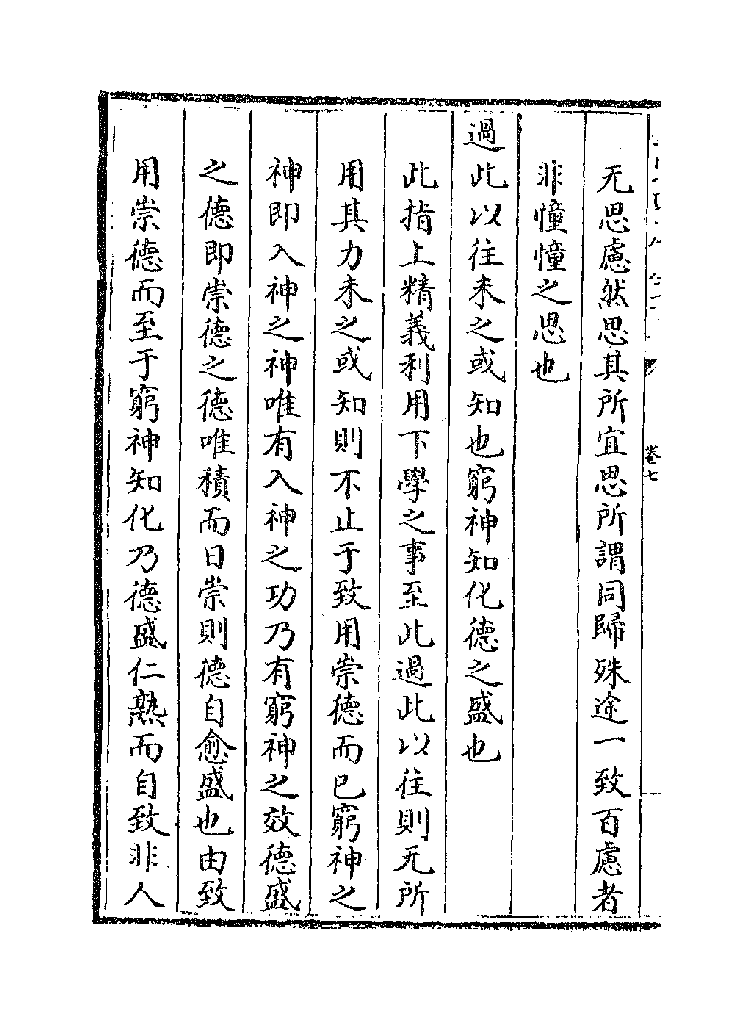 无思慮然思其所宜思所謂同歸殊途一致百慮者
非憧憧之思也
過此以往未之或知也窮神知化德之盛也
此指上精義利用下學之事至此過此以往則无所
用其力未之或知則不止于致用崇德而已窮神之
神即入神之神唯有入神之功乃有窮神之效德盛
之德即崇德之德唯積而日崇則德自愈盛也由致
用崇德而至于窮神知化乃德盛仁熟而自致非人
卷七